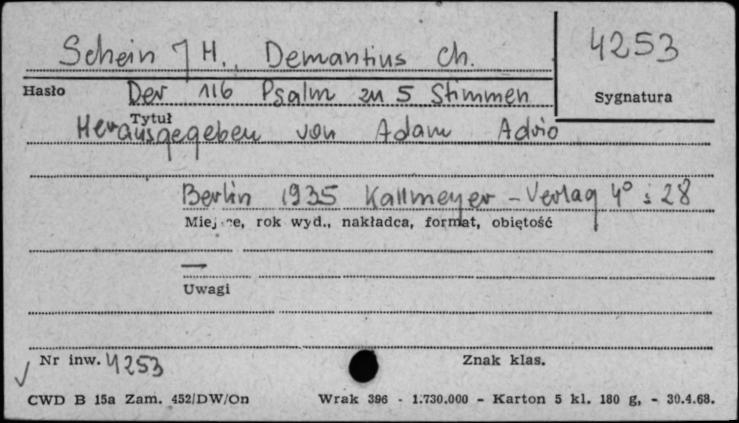 Schein J H., Demantius Ch.
4253
Hasło
Der 116 Psalm zu 5 Stimmen
Sygnatura
Tytuł
Herausgegeben von Adam Adrio
Berlin 1935 Kallmeyer - Verlag 4° s 28
Miejsce, rok wyd., nakładca, format, objętość
—
Uwagi
Nr inw. 4253
Znak klas.
✓
CWD B 15a Zam. 452/DW/On Wrak 396 - 1.730.000 - Karton 5 kl. 180 g, - 30.4.68.